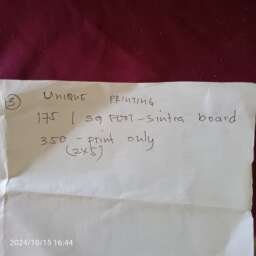 5 UNIQUE PRINTING
175 / sq FOOT - Sintra board
350 - print only
(2x5)
2024/10/15 16:44